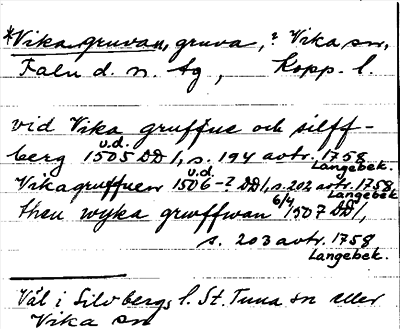 *Vikagruvan, gruva, ? Vika sn,
Falu d. n. tg, Kopp. l.
vid Vika gruffue och silff-
berg u.d. 1505 DD 1, s. 194 avtr. 1758 Langebek.
Vikagruffuen u.d. 1506-? DD 1, s. 202 avtr. 1758 Langebek.
then wyka grwffwan 6/4 1507 DD 1,
s. 203 avtr. 1758
Langebek.
Väl i Silvbergs l. St. Tuna sn eller
Vika sn